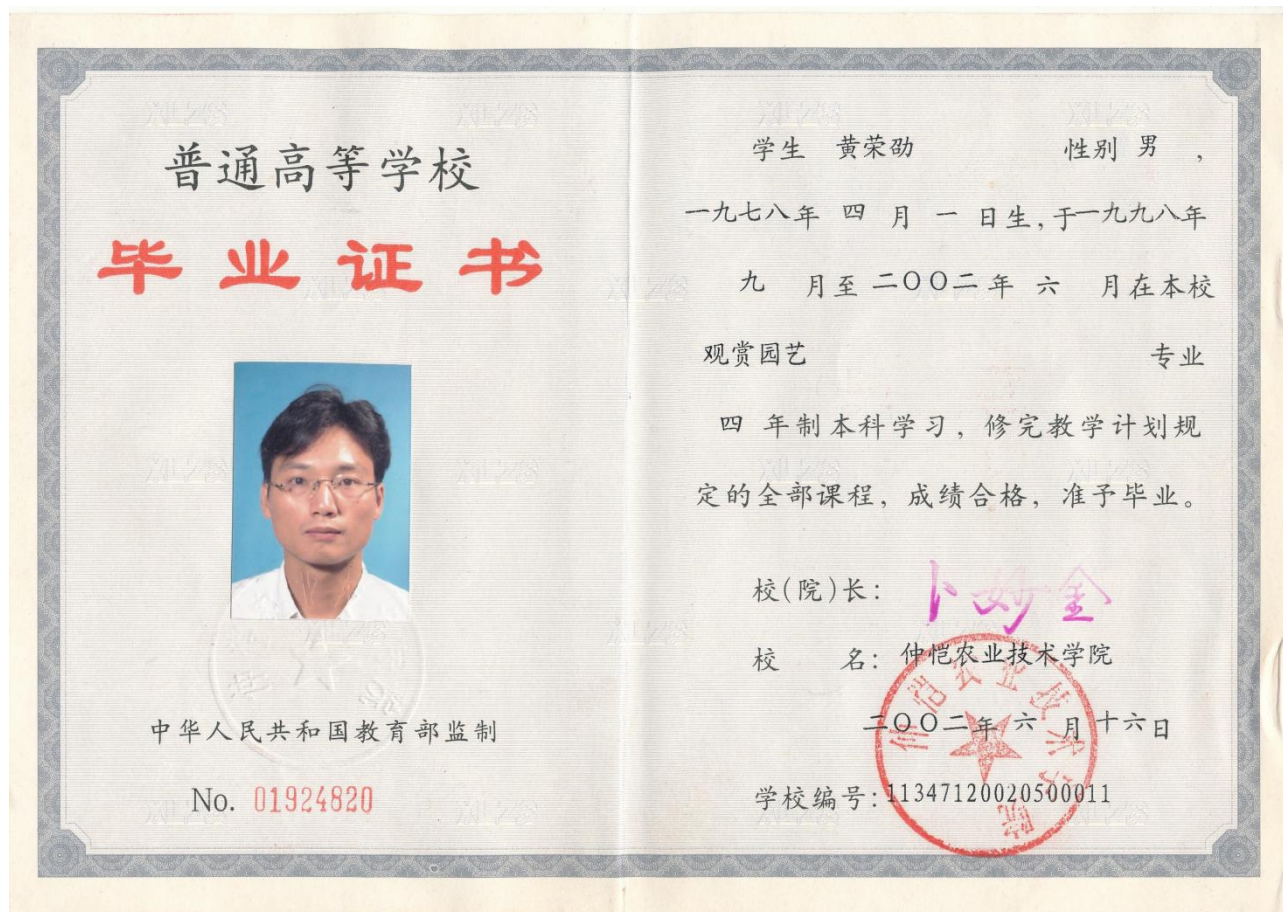 普通高等学校
毕业证书
中华人民共和国教育部监制
No. 01924820
学生 黄荣劭 性别 男 ,
一九七八年 四 月 一 日生,于一九九八年
九 月至二〇〇二年 六 月在本校
观赏园艺 专业
四 年制本科学习, 修完教学计划规
定的全部课程, 成绩合格, 准予毕业。
校(院)长: 卜妙金
校 名: 仲恺农业技术学院
二〇〇二年 六 月十六日
学校编号:11347120020500011
仲恺农业技术学院